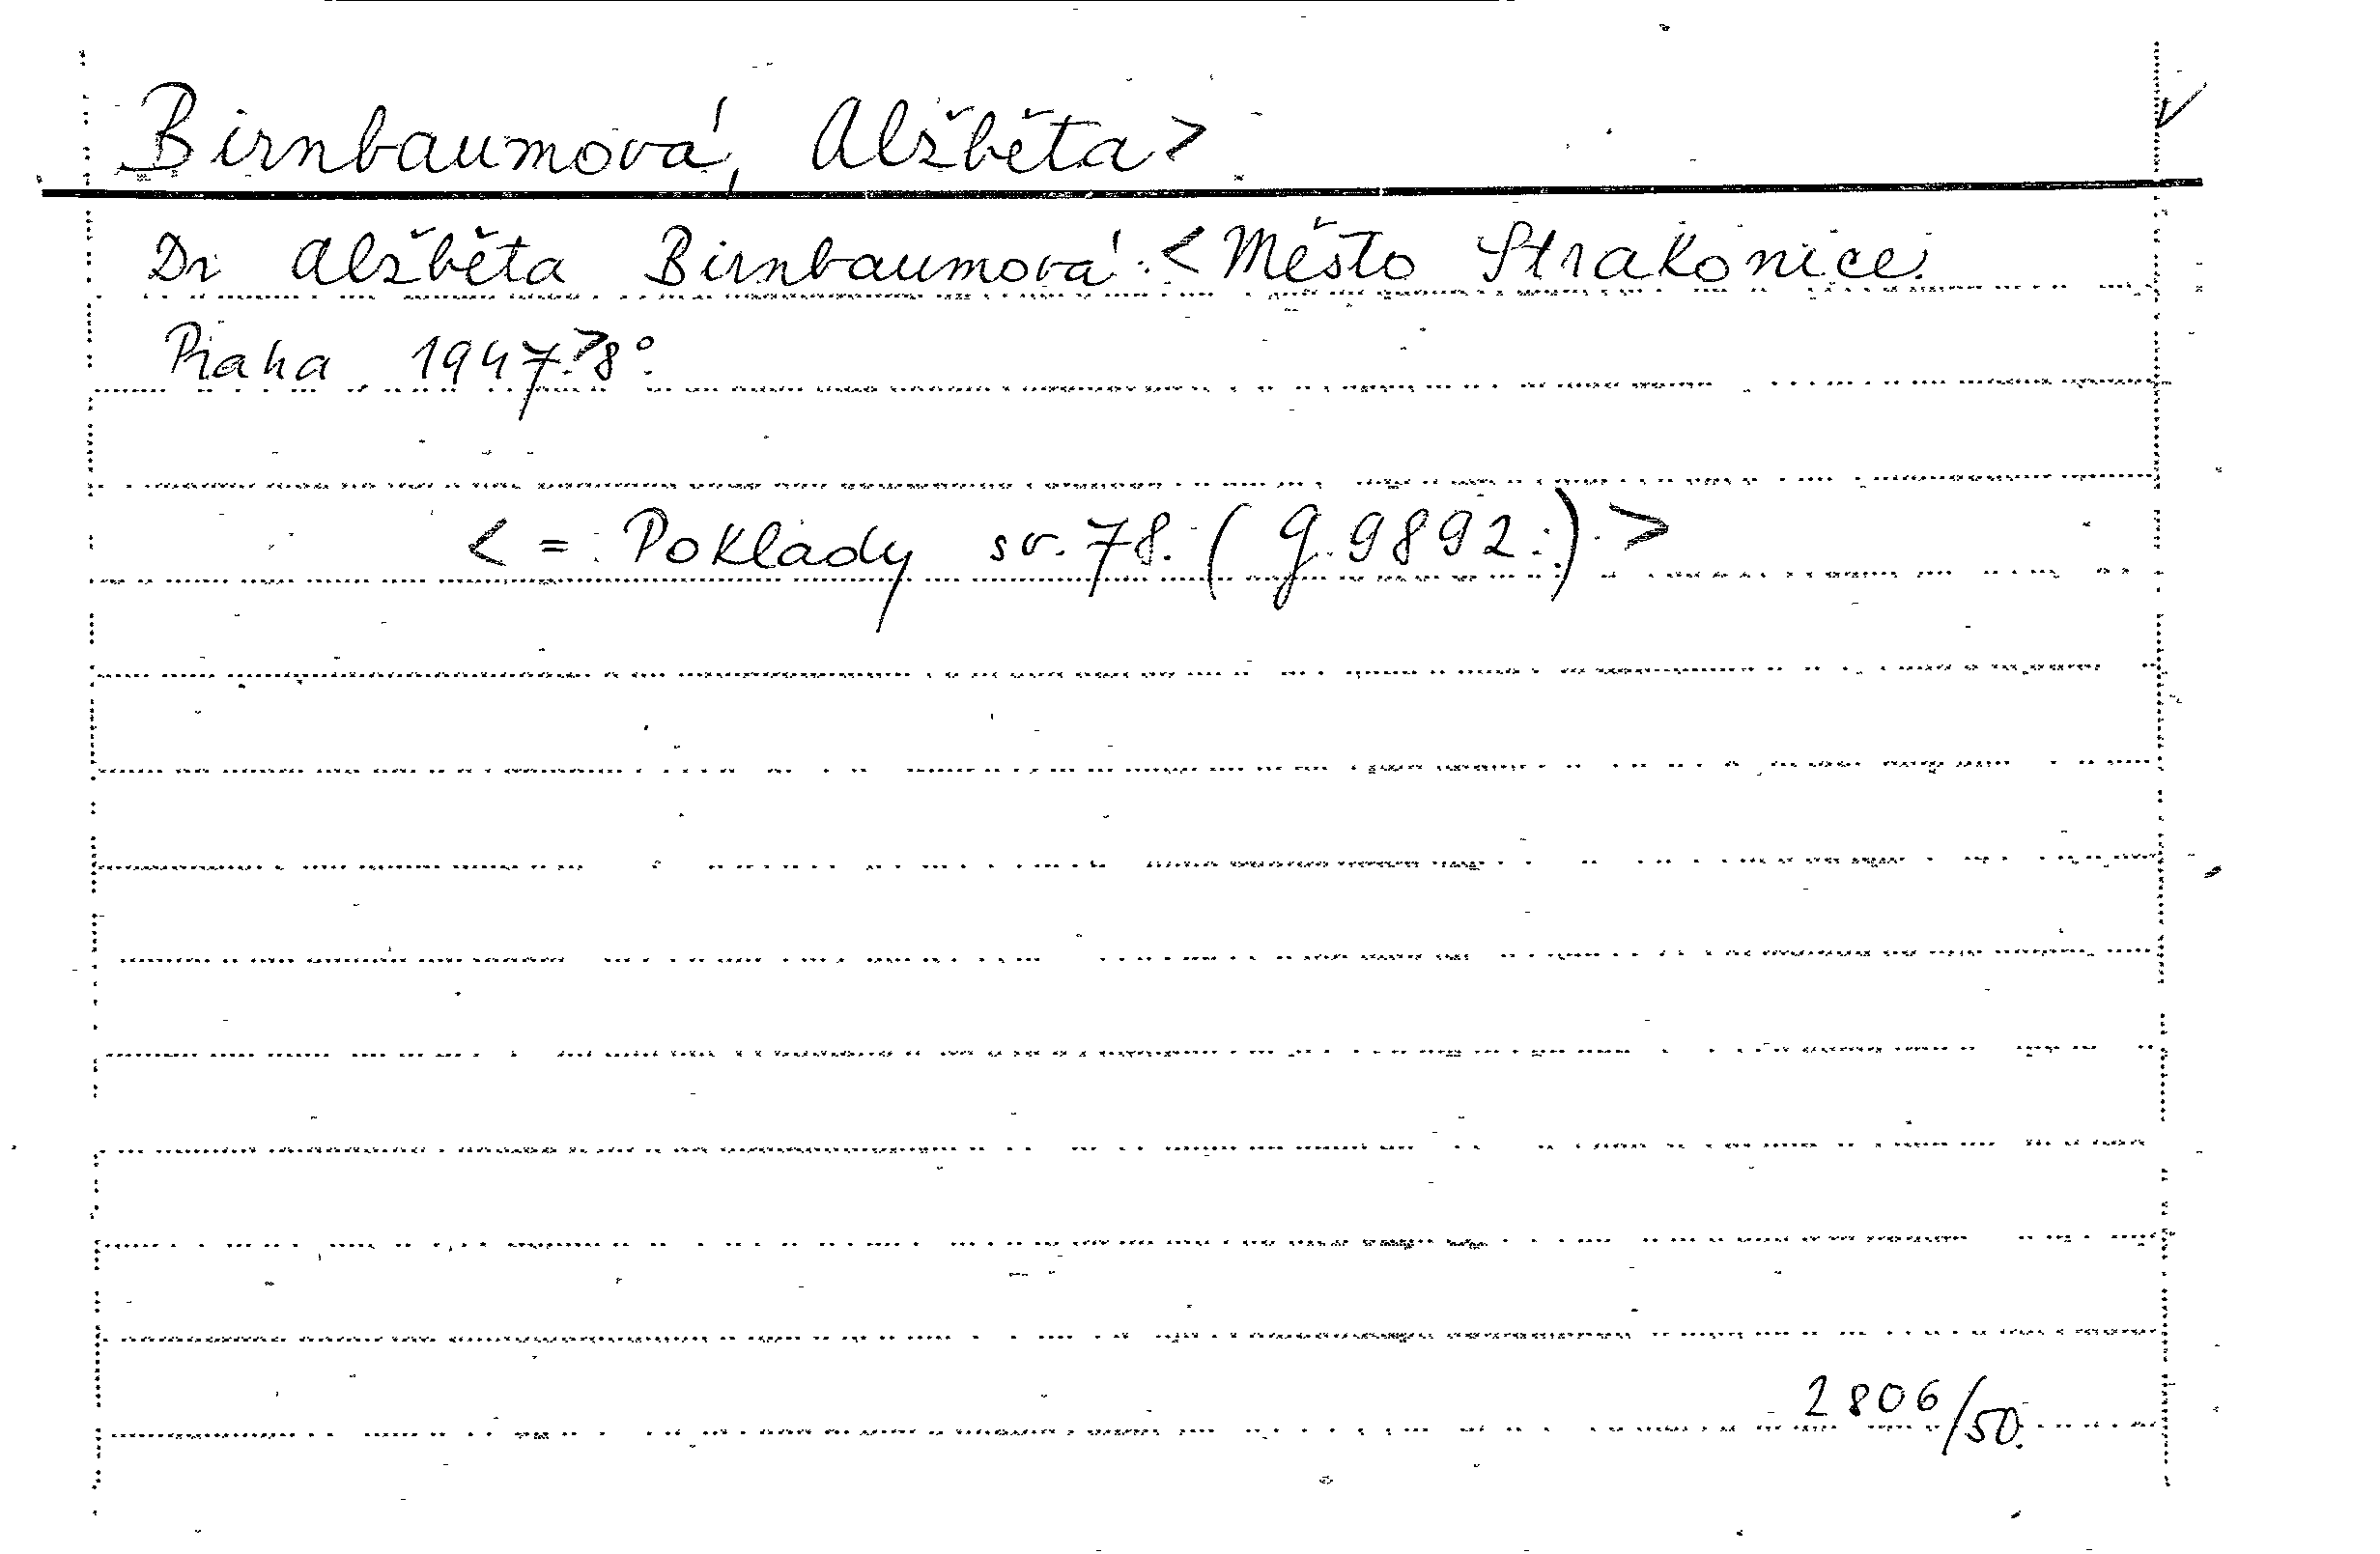 Birnbaumová, Alžběta>
Dr Alžběta Birnbaumová: <Město Strakonice.
Praha 1947.>8°.
< = Poklady sv. 78. ( g. 9892.) >
2806/50.